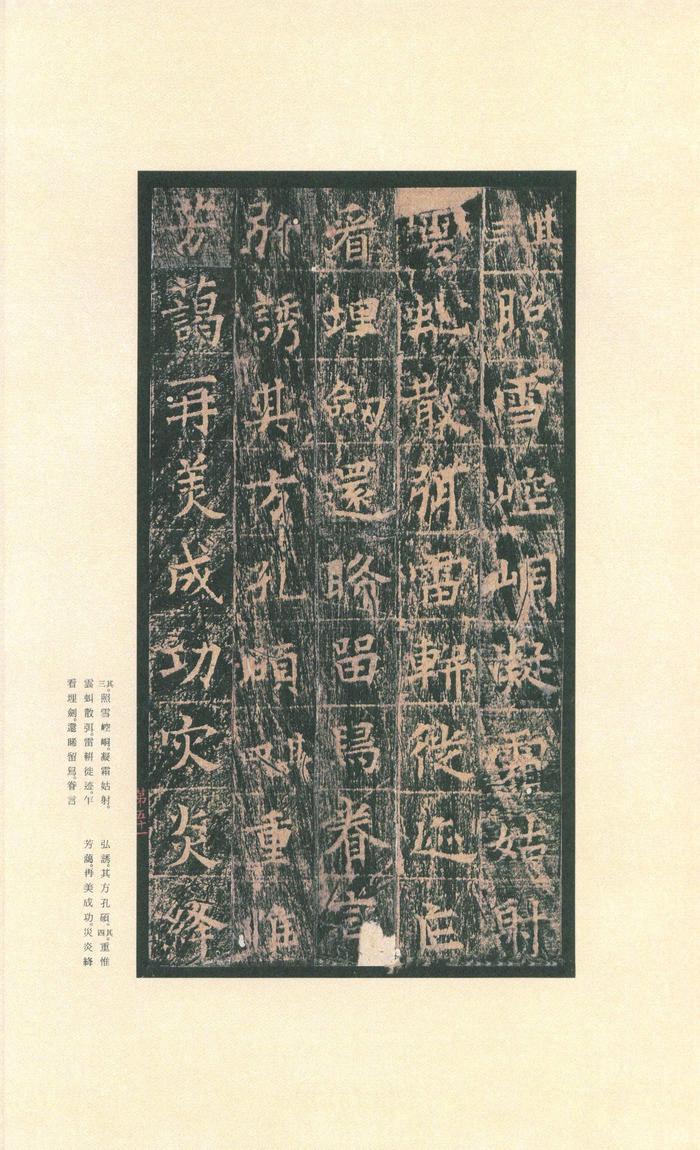 其三照雪崆峒凝霜姑射
雲虬散弭雷軿徙迹乍
看埋劍還睎留舄眷言
弘誘其方孔碩其四重惟
芳藹再美成功灾炎絳
其三。照雪崆峒。凝霜姑射。
雲虬散弭。雷軿徙迹。乍
看埋劍。還睎留舄。眷言
弘誘。其方孔碩。其四。重惟
芳藹。再美成功。災炎絳